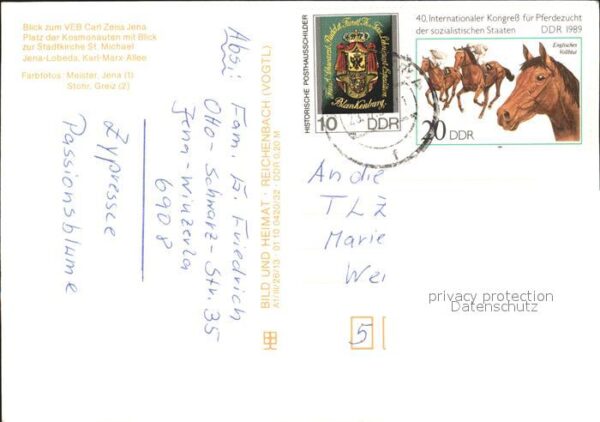 Blick zum VEB Carl Zeiss Jena
Platz der Kosmonauten mit Blick
zur Stadtkirche St. Michael
Jena-Lobeda, Karl-Marx-Allee
Farbfotos: Meister, Jena (1)
Stohr, Greiz (2)
Zypresse
Passionsblume
Abs:
Fam. E. Friedrich
Otto-Schwarz-Str. 35
Jena-Winzerla
6908
BILD UND HEIMAT · REICHENBACH (VOGTL)
A1/III/26/13 · 01 10 0420/32 · DDR 0,20 M
HISTORISCHE POSTHAUSSCHILDER
Blankenburg.
10 DDR
40. Internationaler Kongreß für Pferdezucht
der sozialistischen Staaten
DDR 1989
Englisches
Vollblut
20 DDR
An die
TLZ
Marie
Wei
privacy protection
Datenschutz
5